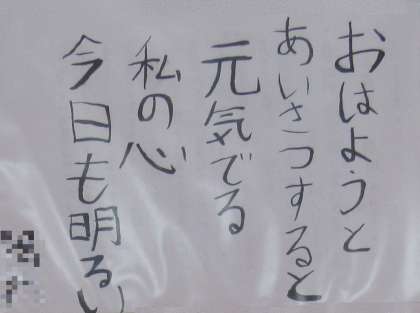 おはようと
あいさつすると
元気でる
私の心
今日も明るい